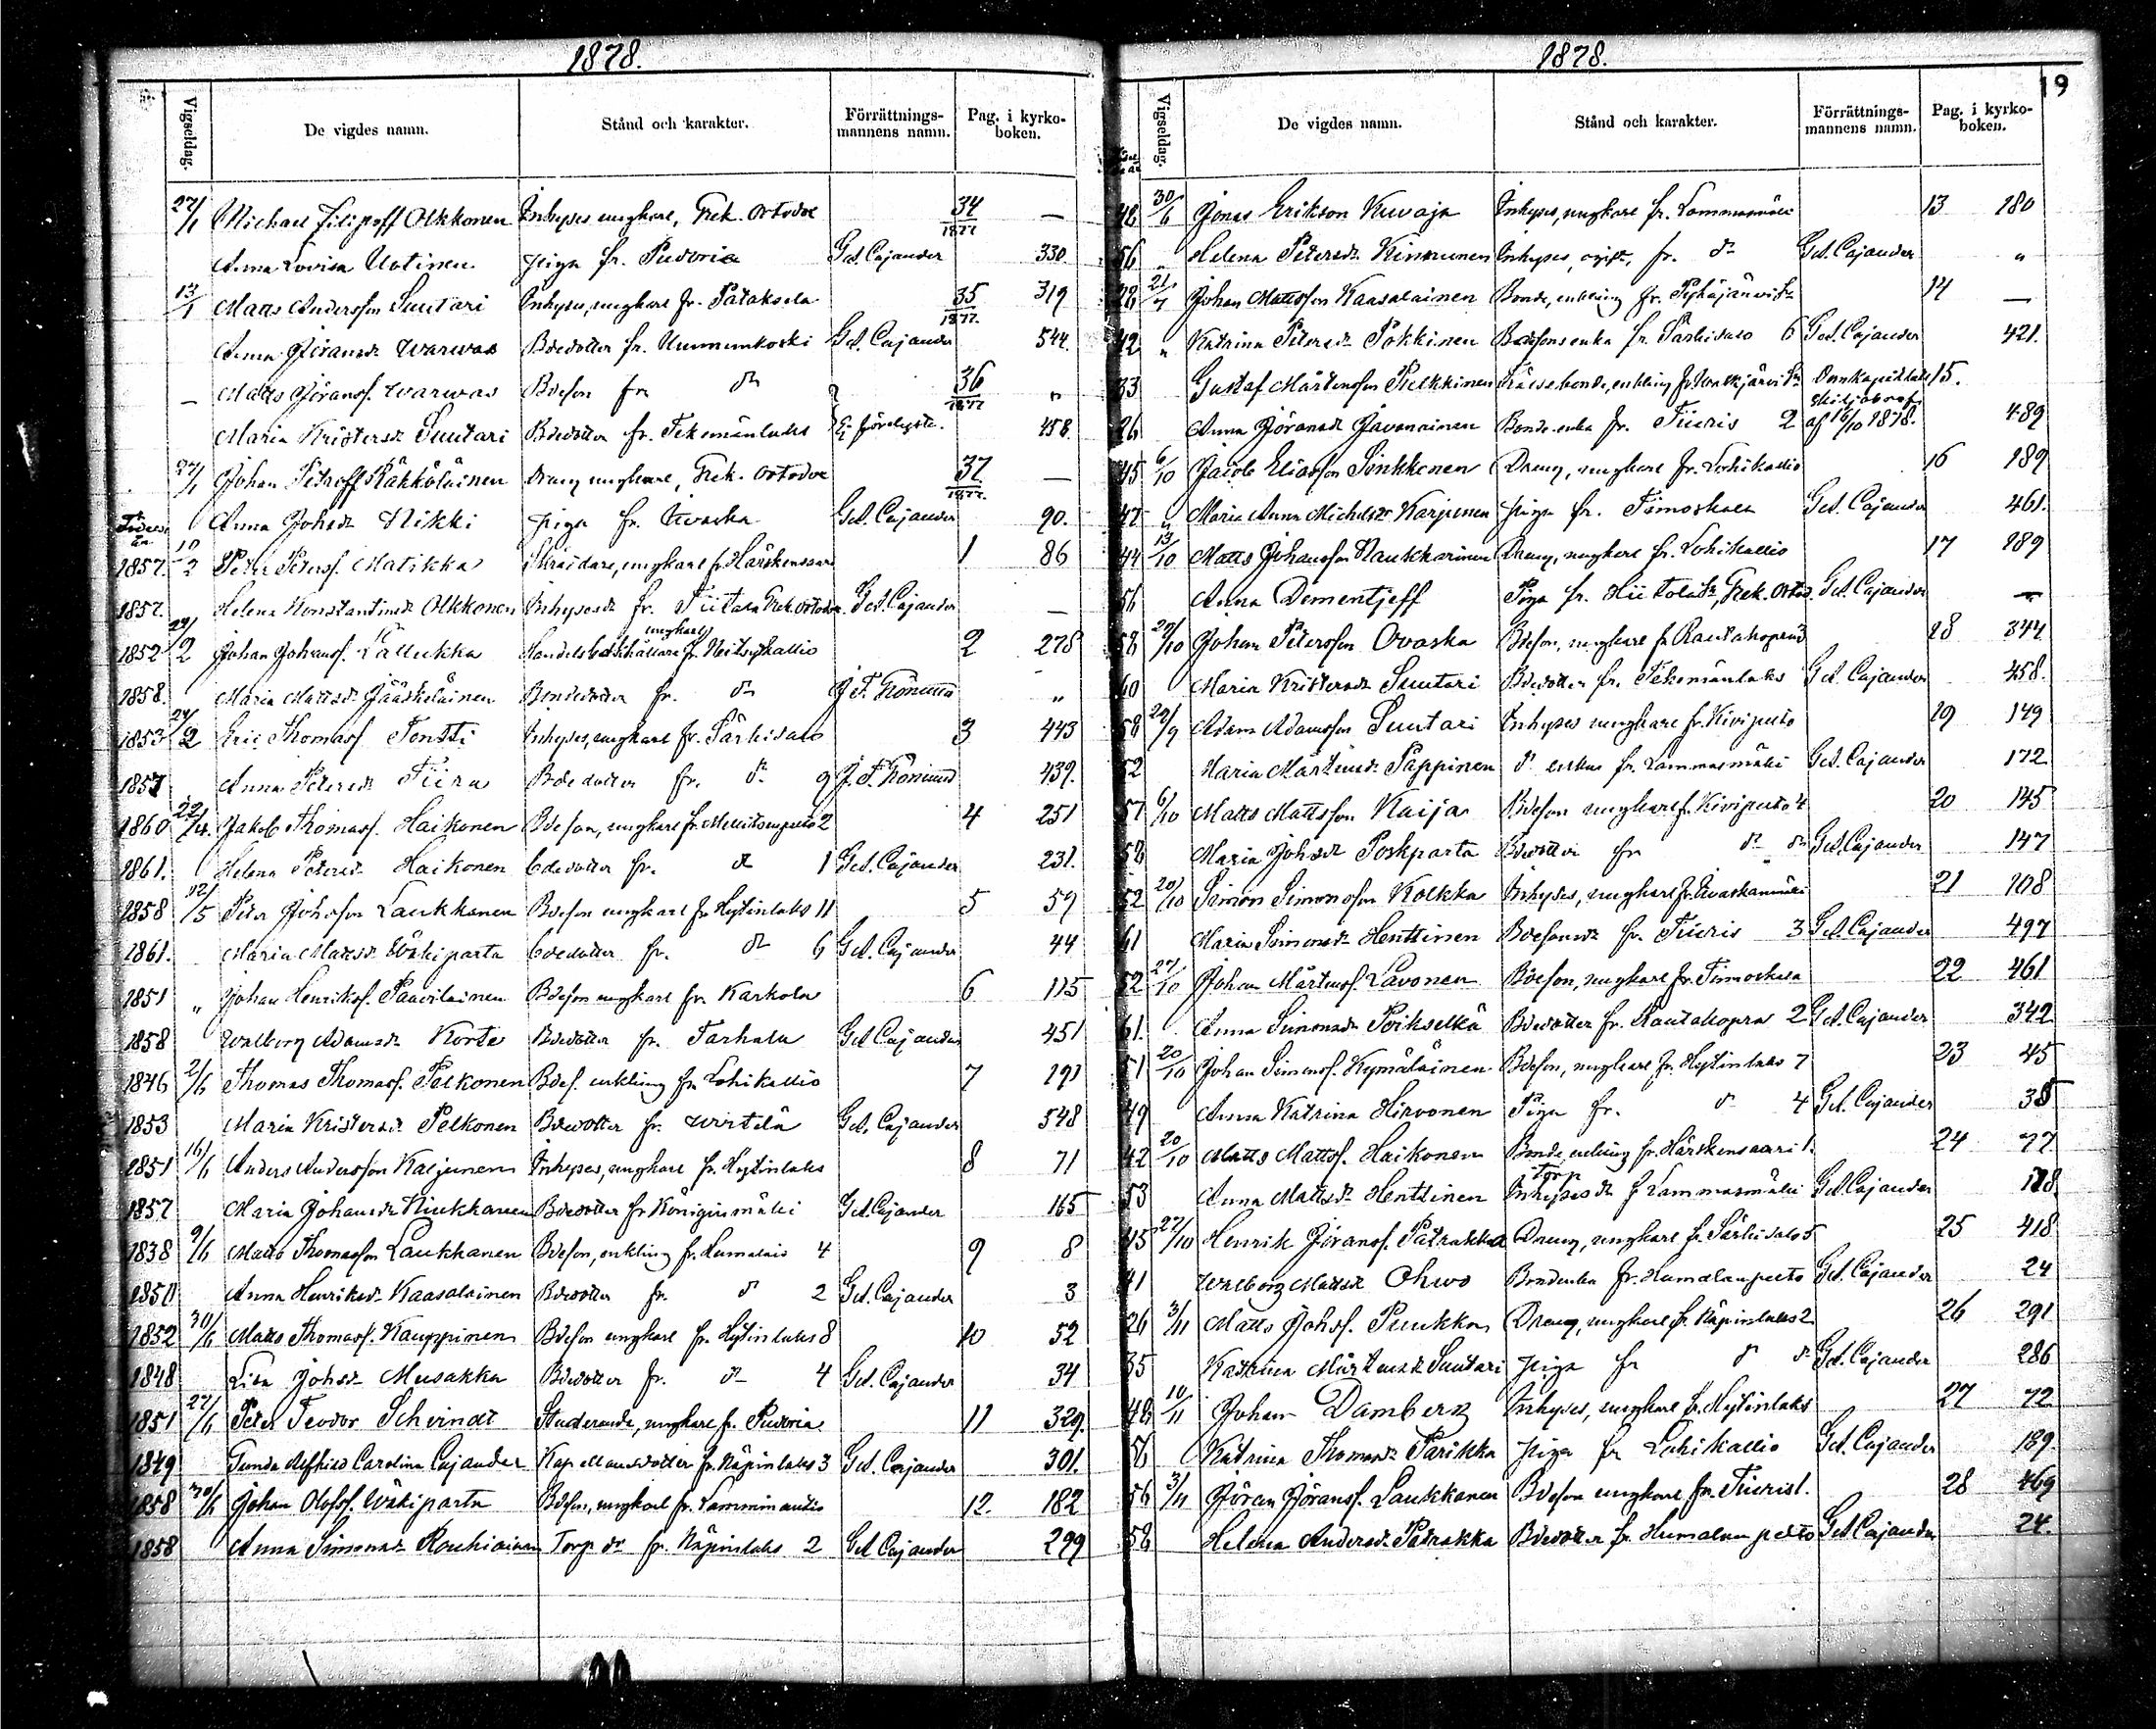 1878.
Vigseldag. De vigdes namn. Stånd och karakter. Förrättnings-mannens namn. Pag. i kyrko-boken.
27/1 Michael Filipoff Olkkonen Inhyses ungkarl, Grek. Ortodox 34/1877 —
Anna Lovisa Uotinen piga fr. Pudoria Gd. Cajander 330.
13/1 Matts Andersson Suutari Inhyses, ungkarl fr. Pataksela 35/1877. 319
Anna Jöransdr Warwas Bdedotter fr. Unnunkoski Gd. Cajander 544.
— Matts Jöransf. Warwas Bdeson fr. do 36/1877 "
Maria Kristersdr Suutari Bdedotter fr. Tekemänlaks Ej fördeligste. 458.
27/1 Johan Petroff Räkköläinen Dräng ungkarl, Grek. Ortodox 37/1877. —
Födelse år Anna Johsdr Nikki piga fr. Ivaska Gd. Cajander 90.
1857. 10/2 Peter Petersf. Matikka Skräddare, ungkarl fr. Härskensaari 1 86
1857. Helena Konstantinsdr Olkkonen Inhysesdr fr. Tiitala Grek. Ortodox. Gd. Cajander —
1852 24/2 Johan Johansf. Lällukka Handelsbokhållare ungkarl fr. Neitsytkallio 2 278
1858. Maria Mattsdr Jääskeläinen Bondedotter fr. do J. F. Grönlund "
1853 24/2 Eric Thomasf. Tontti Inhyses, ungkarl fr. Särkisalo 3 443
1857 Anna Petersdr Tiira Bdedotter fr. do 9 J. F. Grönlund 439.
1860 22/4. Jakob Thomasf. Haikonen Bdeson, ungkarl fr. Mellitsenpelto 2 4 251
1861. Helena Petersdr Haikonen bdedotter fr. do 1 Gd. Cajander 231.
1858 12/5 Peter Johsson Laukkanen Bdeson ungkarl fr. Hytinlaks 11 5 59
1861. Maria Mattsdr Wäkiparta bdedotter fr. do 6 Gd. Cajander 44
1851 " Johan Henriksf. Paavilainen Bdeson ungkarl fr. Karkola 6 115
1858 Walborg Adamsdr Korte Bdedotter fr. Tarhala Gd Cajander 451
1846 2/6 Thomas Thomasf. Pelkonen Bdef. enkling fr. Lohikallio 7 191
1853 Maria Kristersdr Pelkonen Bdedotter fr. Wirtelä Gd. Cajander 548
1851 16/6 Anders Andersson Karjunen Inhyses, ungkarl fr. Hytinlaks 8 71
1857 Maria Johansdr Niukkanen Bdedotter fr. Königinmäki Gd. Cajander 165
1838 9/6 Matts Thomasson Laukkanen Bdeson, enkling fr. Lumalais 4 9 8
1850 Anna Henriksdr Kaasalainen Bdedotter fr. do 2 Gd. Cajander 3
1852 30/6 Matts Thomasf. Kauppinen Bdeson ungkarl fr. Hytinlaks 8 10 52
1848 Lisa Johsdr Musakka Bdedotter fr. do 4 Gd. Cajander 34
1851 27/6 Peter Teodor Schvindt Studerande, ungkarl fr. Pudoria 11 329.
1849 Tunda Alfhild Carolina Cajander Kapellansdotter fr. Näpinlaks 3 Gd. Cajander 301.
1858 30/6 Johan Olofsf. Wäkiparta Bdeson, ungkarl fr. Lamminautio 12. 182
1858 Anna Simonsdr Rouhiainen Torp dr fr. Näpinlaks 2 Gd Cajander 299
1878.
19
Vigseldag. De vigdes namn. Stånd och karakter. Förrättnings-mannens namn. Pag. i kyrko-boken.
48 30/6 Jonas Erikson Kuvaja Inhyses, ungkarl fr. Lammasmäki 13 180
56 " Helena Petersdr Kinnunen Inhyses, ogift, fr. do Gd. Cajander "
28 21/7 Johan Mattsson Kaasalainen Bonde, enkling fr. Pyhäjärvi Sn 14 —
42 " Katrina Petersdr Pökkinen Bdesonsenka fr. Särkisalo 6 Gd. Cajander 421.
33 Gustaf Mårtensson Pulkkinen Frälsebonde, enkling fr. Walkjärvi Sn Domkapitlets 15.
26 Anna Jöransdr Javanainen Bonde enka fr. Tiuris 2 skiljobref af 16/10 1878. 489
45 6/10 Jacob Eliasson Sinkkonen Dräng, ungkarl fr. Lohikallio 16 189
42 " Maria Anna Michelsdr Karjunen piga fr. Timoskala Gd. Cajander 461.
44 13/10 Matts Johansson Naukkarinen Dräng, ungkarl fr. Lohikallio 17 189
56 Anna Dementjeff Piga fr. Hiitola Sn, Grek. Ortod. Gd. Cajander —
58 20/10 Johan Petersson Ovaska Bdeson, ungkarl fr. Rautahopea 3 18 344
60 Maria Kristersdr Suutari Bdedotter fr. Tekemänlaks Gd. Cajander 458.
58 29/9 Adam Adamsson Suutari Inhyses ungkarl fr. Kivipelto 19 149
52 Maria Mårtensdr Pappinen do enka fr. Lammasmäki Gd. Cajander 172
57 6/10 Matts Mattsson Kaija Bdeson ungkarl fr. Kivipelto 4 20 145
58 Maria Johsdr Poskparta Bdedotter fr. do do Gd. Cajander 147
52 20/10 Simon Simonsson Kolkka Inhyses, ungkarl fr. Ivaskanmäki 21 108
61 Maria Simonsdr Henttinen Bdesonsdr fr. Tiuris 3 Gd. Cajander 497
52 27/10 Johan Mårtensf. Lavonen Bdeson, ungkarl fr. Timoskala 22 461
61. Anna Simonsdr Poikselkä Bdedotter fr. Rautahopea 2 Gd. Cajander 342
51 20/10 Johan Simonsf. Kymäläinen Bdeson, ungkarl fr. Hytinlaks 7 23 45
49 Anna Katrina Hirvonen Piga fr. do 4 Gd. Cajander 38
42 20/10 Matts Mattsf. Haikonen Bonde, enkling fr. Härskensaari 1. 24 77.
53 Anna Mattsdr Henttinen Torp Inhysesdr fr. Lammasmäki Gd. Cajander 178
45 27/10 Henrik Jöransf. Patrakka Dräng, ungkarl fr. Särkisalo 5 25 418
41 Walborg Mattsdr Ohwo Bondenka fr. Humalanpelto Gd. Cajander 24
26 3/11 Matts Johsf. Puukka Dräng, ungkarl fr. Näpinlaks 2 26 291
35 Katrina Mårtensdr Suutari piga fr do do Gd. Cajander 286
48 10/11 Johan Damberg Inhyses, ungkarl fr. Hytinlaks 27 72
56 Katrina Thomasdr Parikka piga fr Lohikallio Gd. Cajander 189.
56 3/11 Jöran Jöransf. Laukkanen Bdeson ungkarl fr. Tiuris 1. 28 469
58 Helena Andersdr Patrakka Bdedotter fr. Humalanpelto Gd Cajander 24.